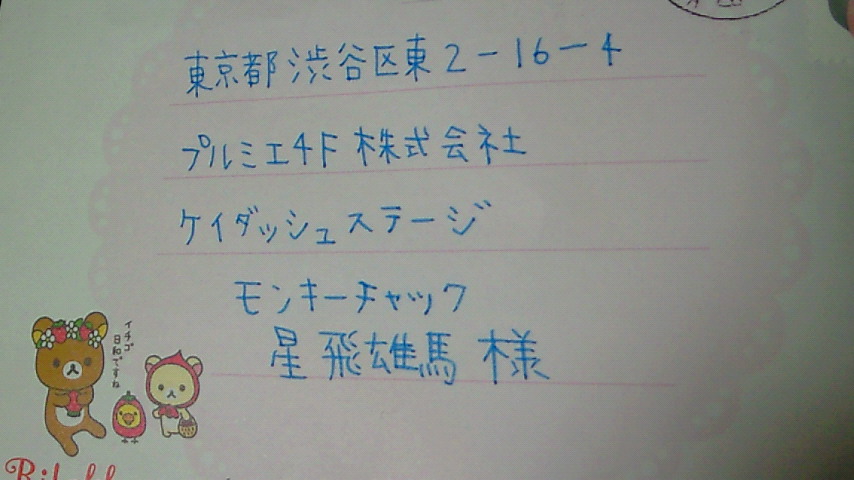 東京都渋谷区東2-16-4
プルミエ4F 株式会社
ケイダッシュステージ
モンキーチャック
星飛雄馬 様
イチゴ
日和ですね